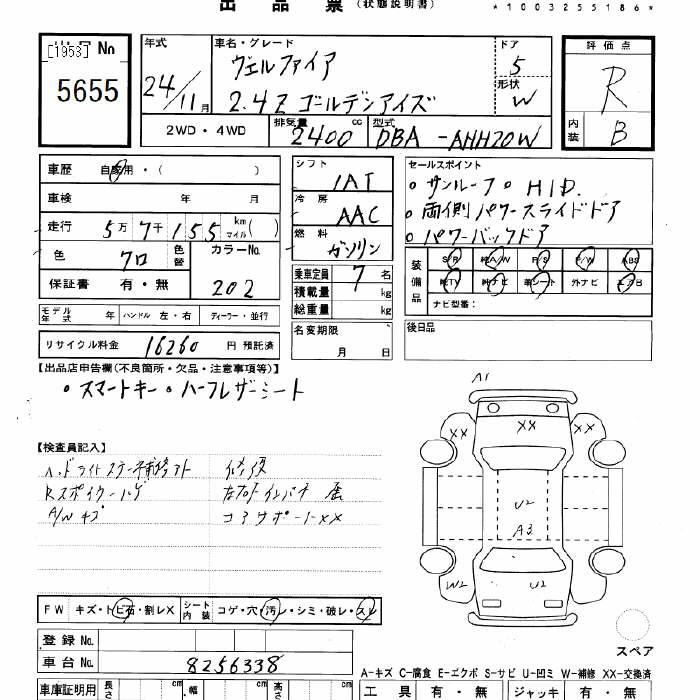 出品票（状態説明書）
*1003255186*
[1953] No
5655
年式 24/11月
車名・グレード
ヴェルファイア
2.4Z ゴールデンアイズ
ドア 5
形状 W
評価点 R
内装 B
2WD・4WD
排気量 2400 cc
型式 DBA-ANH20W
車歴 自家用・( )
車検 年 月
走行 5万7千155 km マイル( )
色 クロ 色替
カラーNo. 202
保証書 有・無
シフト IAT
冷房 AAC
燃料 ガソリン
乗車定員 7名
積載量 kg
総重量 kg
セールスポイント
○サンルーフ○HID.
○両側パワースライドドア
○パワーバックドア
装備品
S/R A/W P/S P/W ABS
TV ナビ 革シート 外ナビ エアB
ナビ型番:
モデル年式 年 ハンドル 左・右 ディーラー・並行
名変期限 月 日
後日品
リサイクル料金 16260 円 預託済
【出品店申告欄(不良箇所・欠品・注意事項等)】
・スマートキー・ハーフレザーシート
【検査員記入】
ヘッドライトステー補修アト 修復
左右フロントインパネ 歪
A/Wキズ コアサポートXX
A1
XX XX XX
U2
A3
W2 U2
スペア
FW キズ・トビ石・割レX シート内装 コゲ・穴・汚レ・シミ・破レ・スレ
登録No.
車台No. 8256338
A-キズ C-腐食 E-エクボ S-サビ U-凹ミ W-補修 XX-交換済
車庫証明用 長さ cm 幅 cm 高さ cm
工具 有・無 ジャッキ 有・無